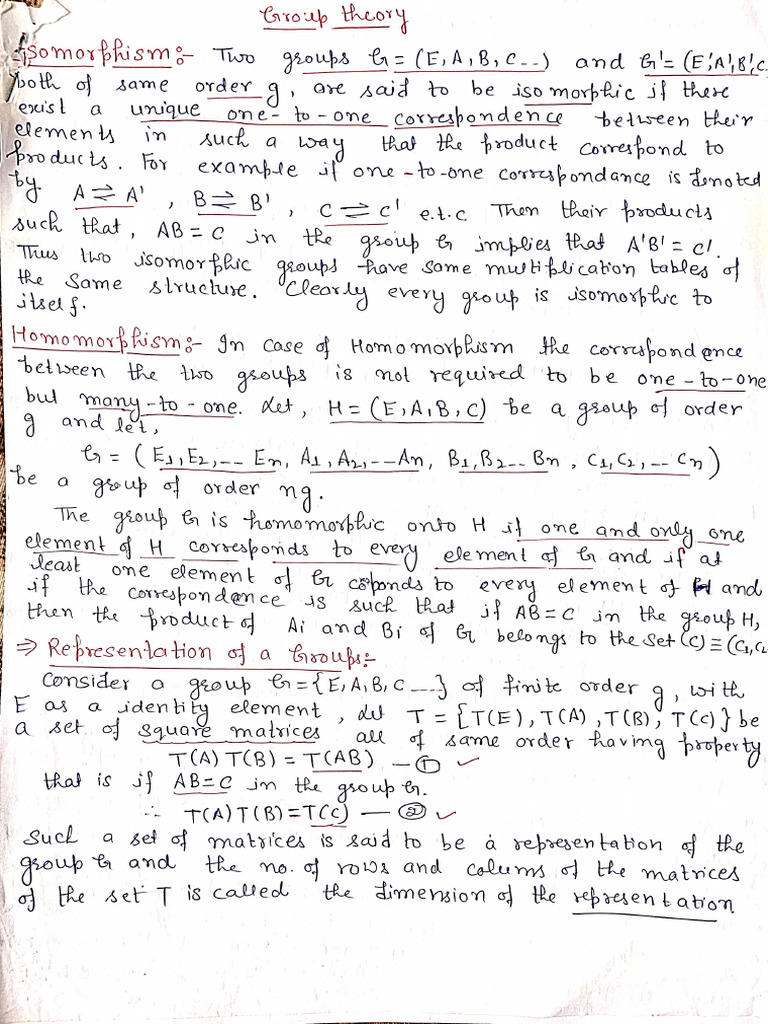 Group theory
Isomorphism:- Two groups G = (E, A, B, C --) and G' = (E', A', B', C
both of same order g, are said to be isomorphic if there
exist a unique one-to-one correspondence between their
elements in such a way that the product correspond to
products. For example if one-to-one correspondance is denoted
by A ⇌ A' , B ⇌ B' , C ⇌ C' e.t.c Then their products
such that, AB = C in the group G implies that A'B' = C'.
Thus two isomorphic groups have same multiplication tables of
the same structure. Clearly every group is isomorphic to
itself.
Homomorphism:- In case of Homomorphism the correspondence
between the two groups is not required to be one-to-one
but many-to-one. Let, H = (E, A, B, C) be a group of order
g and let,
G = ( E1, E2, -- En, A1, A2, -- An, B1, B2 -- Bn , C1, C2, -- Cn )
be a group of order ng.
The group G is homomorphic onto H if one and only one
element of H corresponds to every element of G and if at
least one element of G coponds to every element of H and
if the correspondence is such that if AB = C in the group H,
then the product of Ai and Bi of G belongs to the set (C) ≡ (C1, C2
⇒ Representation of a Groups:-
Consider a group G = {E, A, B, C ---} of finite order g, with
E as a identity element, Let T = {T(E), T(A), T(B), T(C)} be
a set of square matrices all of same order having property
T(A) T(B) = T(AB) — ① ✓
that is if AB = C in the group G.
∴ T(A) T(B) = T(C) — ② ✓
Such a set of matrices is said to be a representation of the
group G and the no. of rows and colums of the matrices
of the set T is called the dimension of the representation